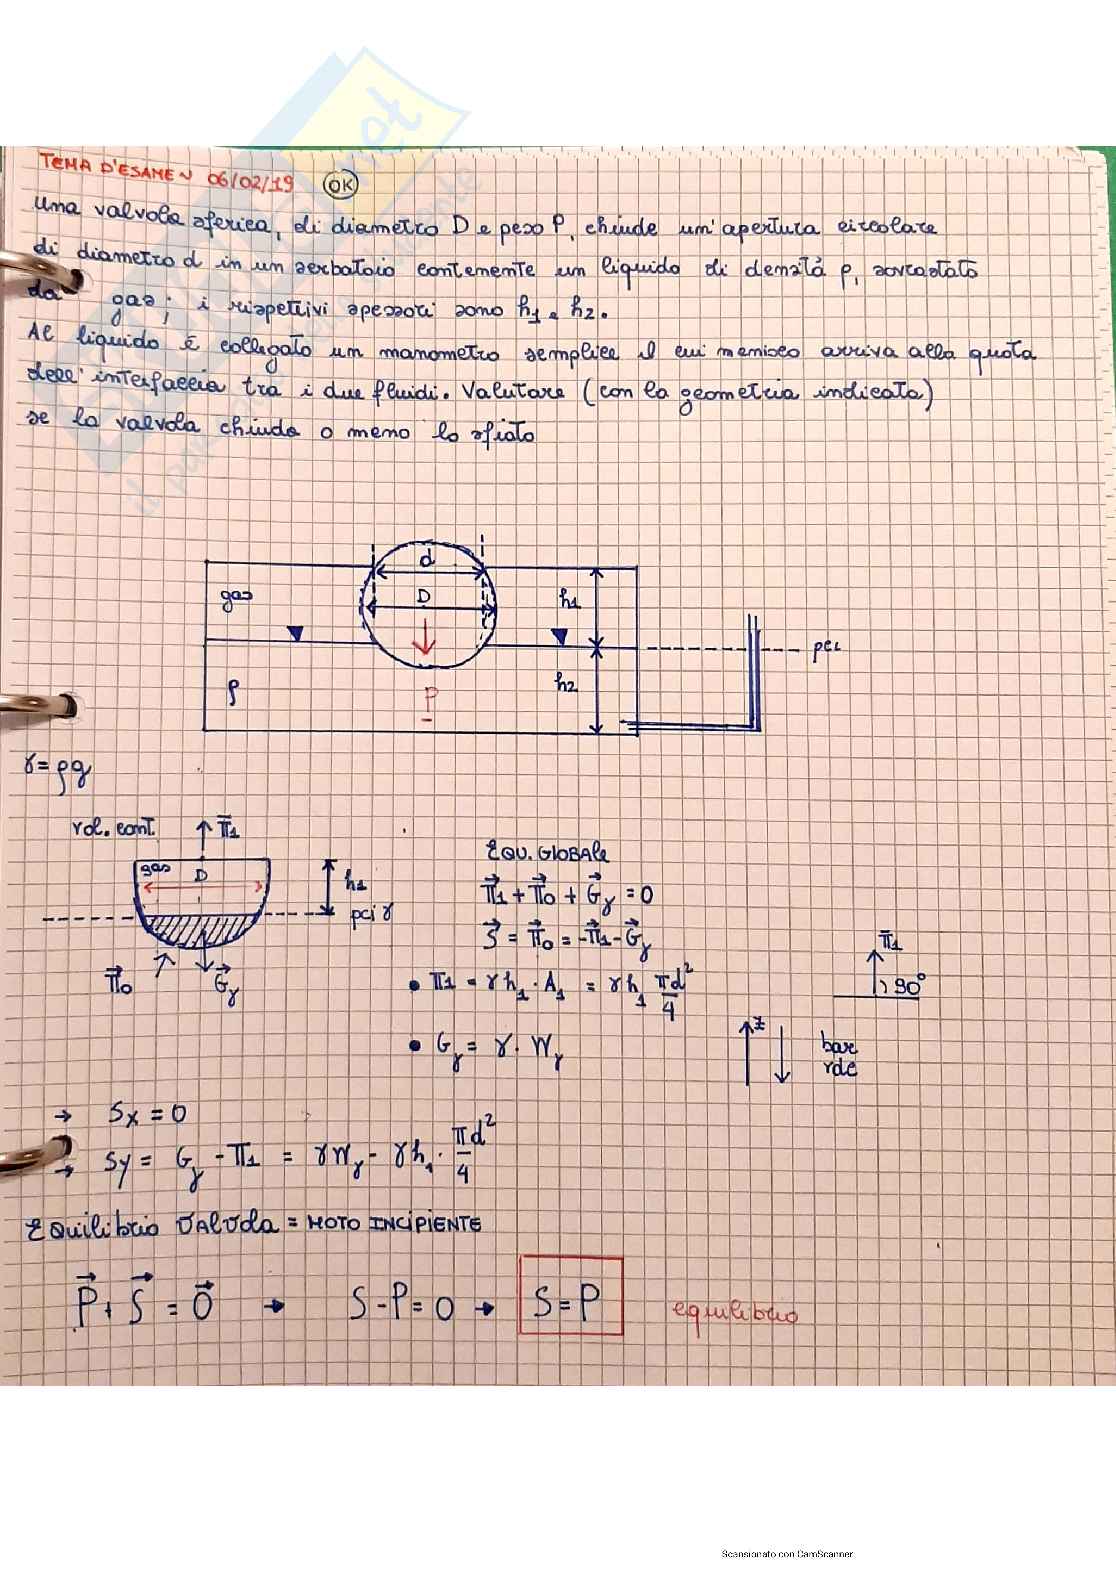 TEMA D'ESAME N 06/02/19 OK
una valvola sferica, di diametro D e peso P, chiude un' apertura circolare
di diametro d in un serbatoio contenente un liquido di densità ρ, sovrastato
da gas; i rispettivi spessori sono h1 e h2.
Al liquido è collegato un manometro semplice il cui menisco arriva alla quota
dell' interfaccia tra i due fluidi. Valutare (con la geometria indicata)
se la valvola chiuda o meno lo sfiato
d
gas D h1
pci
ρ P h2
γ = ρg
vol. cont. Π1
gas D h1
pci γ
Π0 Gγ
EQU. GLOBALE
Π1 + Π0 + Gγ = 0
S = Π0 = -Π1 - Gγ
• Π1 = γ h1 · A1 = γ h1 πd²/4
Π1
90°
• Gγ = γ · Wγ
z
→ Sx = 0
→ Sy = Gγ - Π1 = γWγ - γh1 · πd²/4
EQuilibrio VALVOLA = MOTO INCIPIENTE
P + S = 0 → S - P = 0 → S = P equilibrio
Scansionato con CamScanner